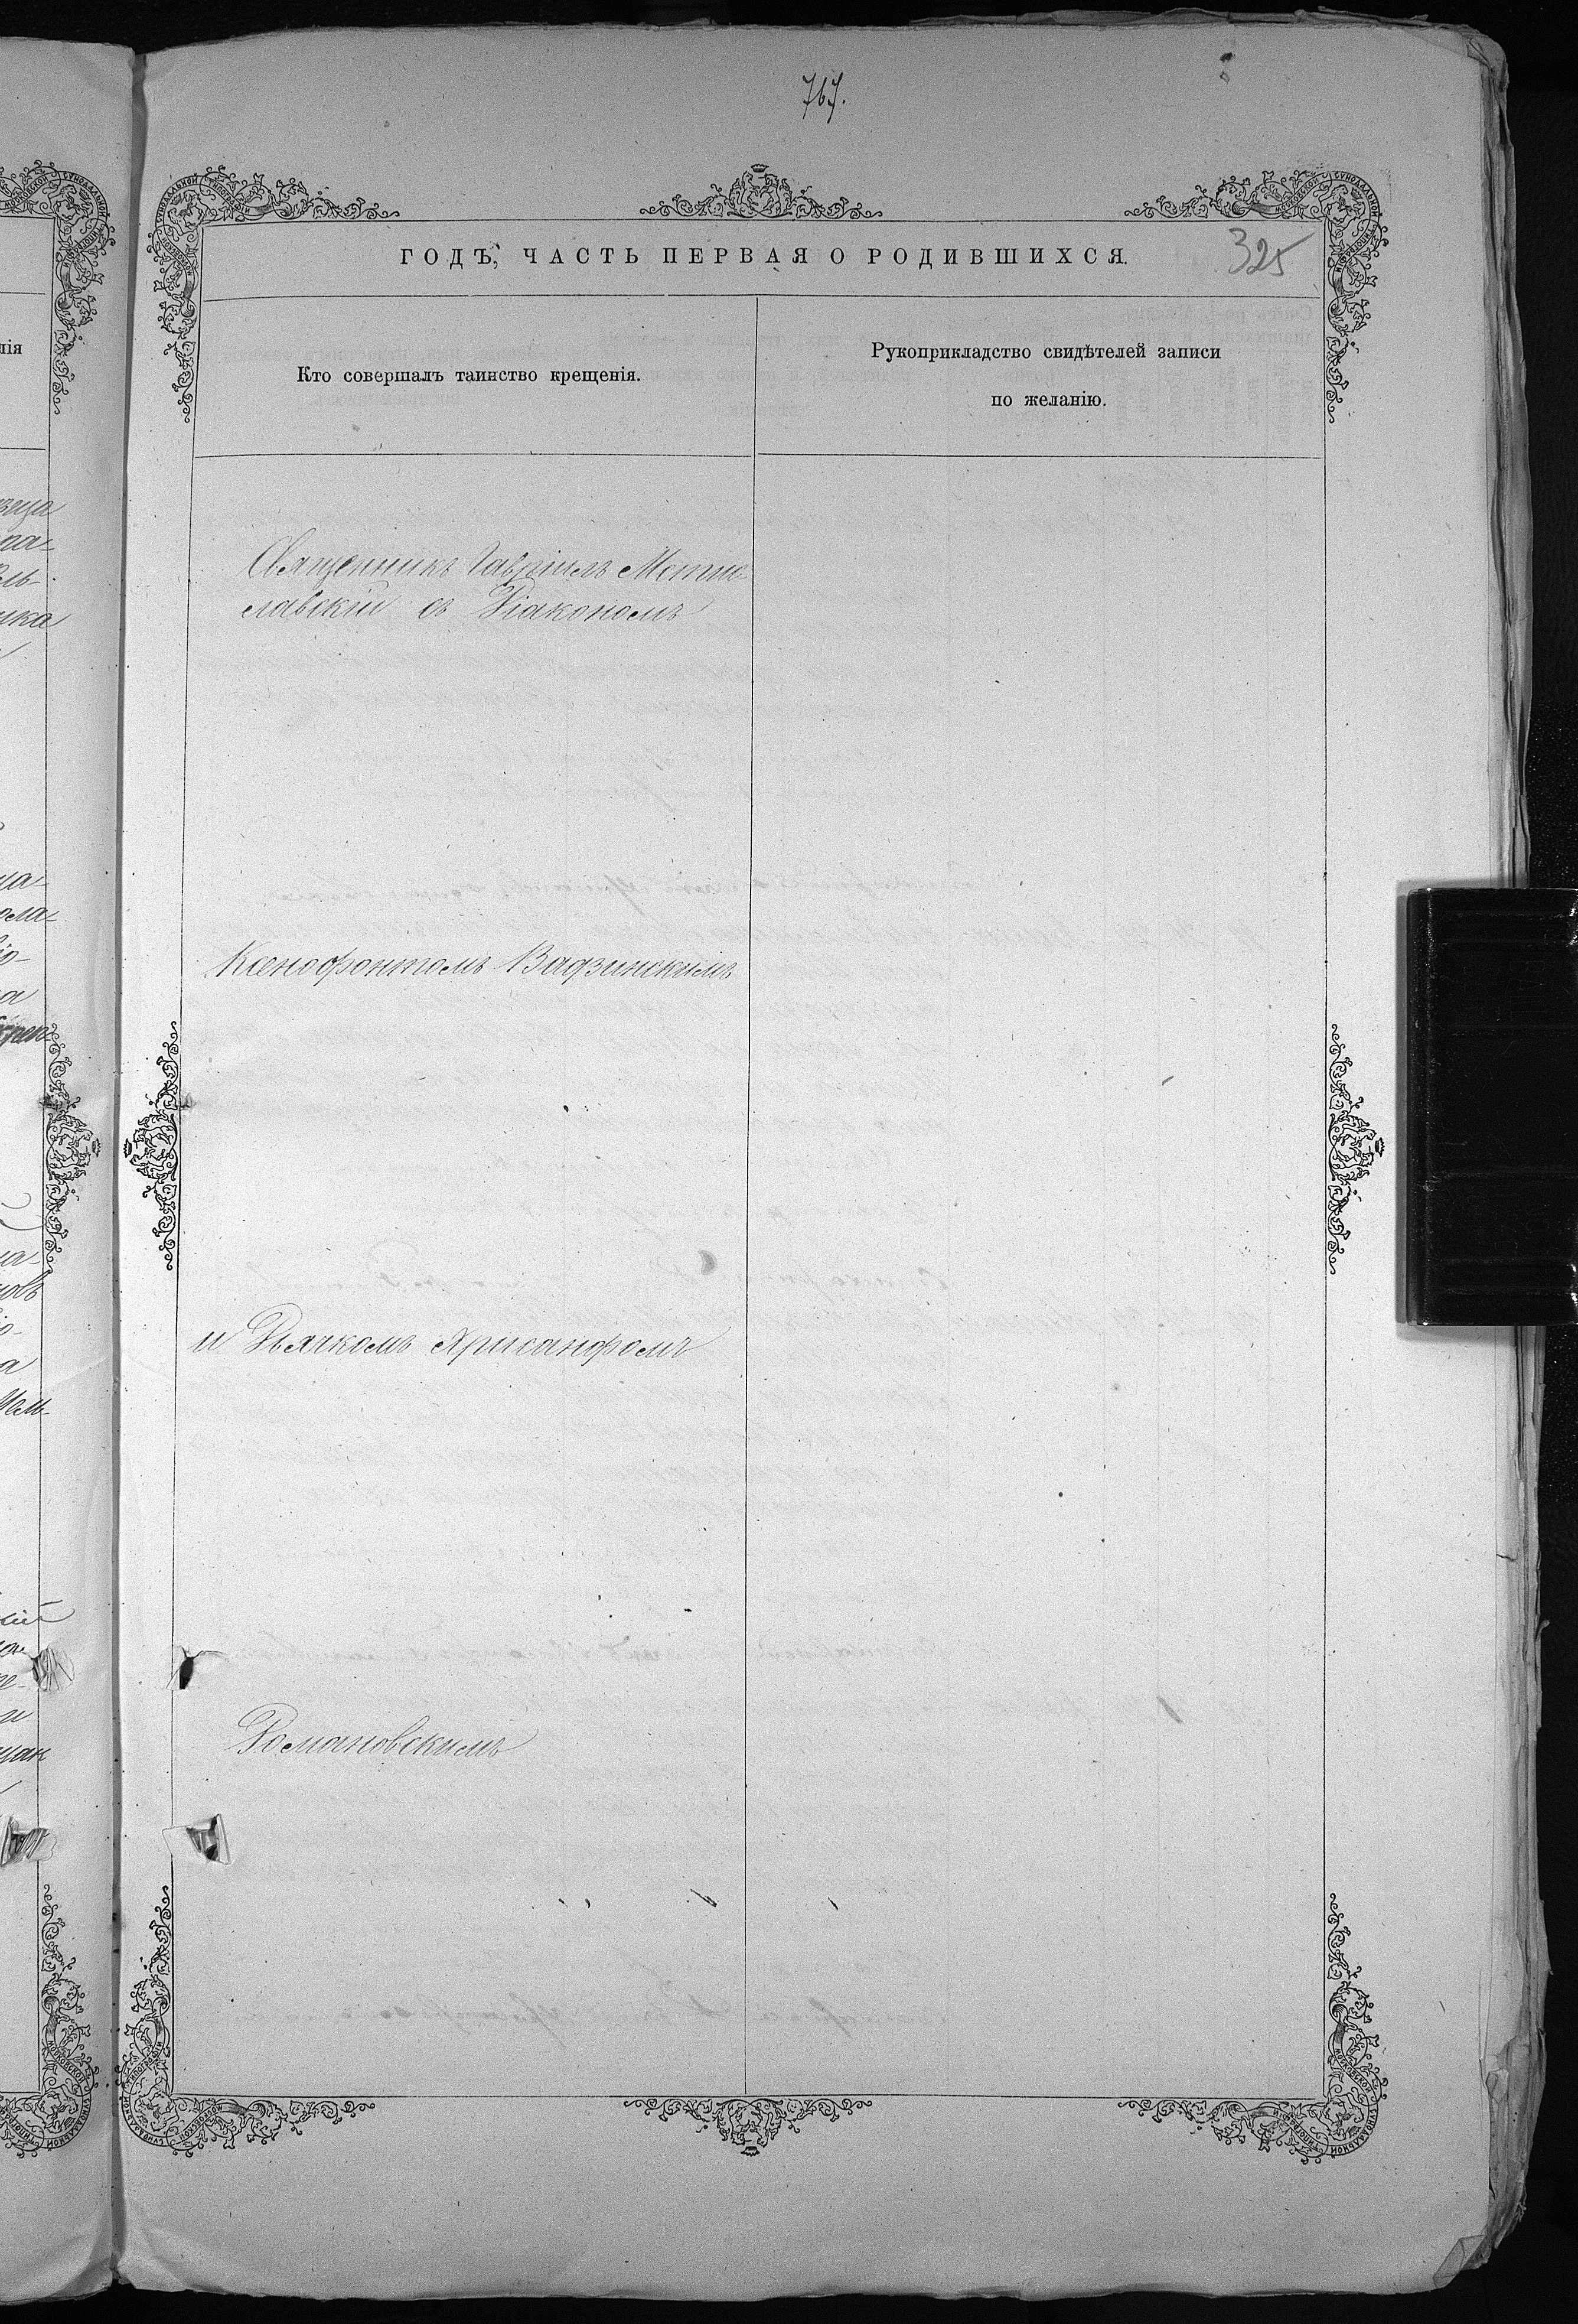 767.
ГОДЪ, ЧАСТЬ ПЕРВАЯ О РОДИВШИХСЯ.
325
Кто совершалъ таинство крещенія.
Рукоприкладство свидѣтелей записи
по желанію.
Священникъ Гавріилъ Мсти-
славскій съ Діакономъ
Ксенофонтомъ Вадзинскимъ
и Дьячкомъ Хрисанфомъ
Романовскимъ